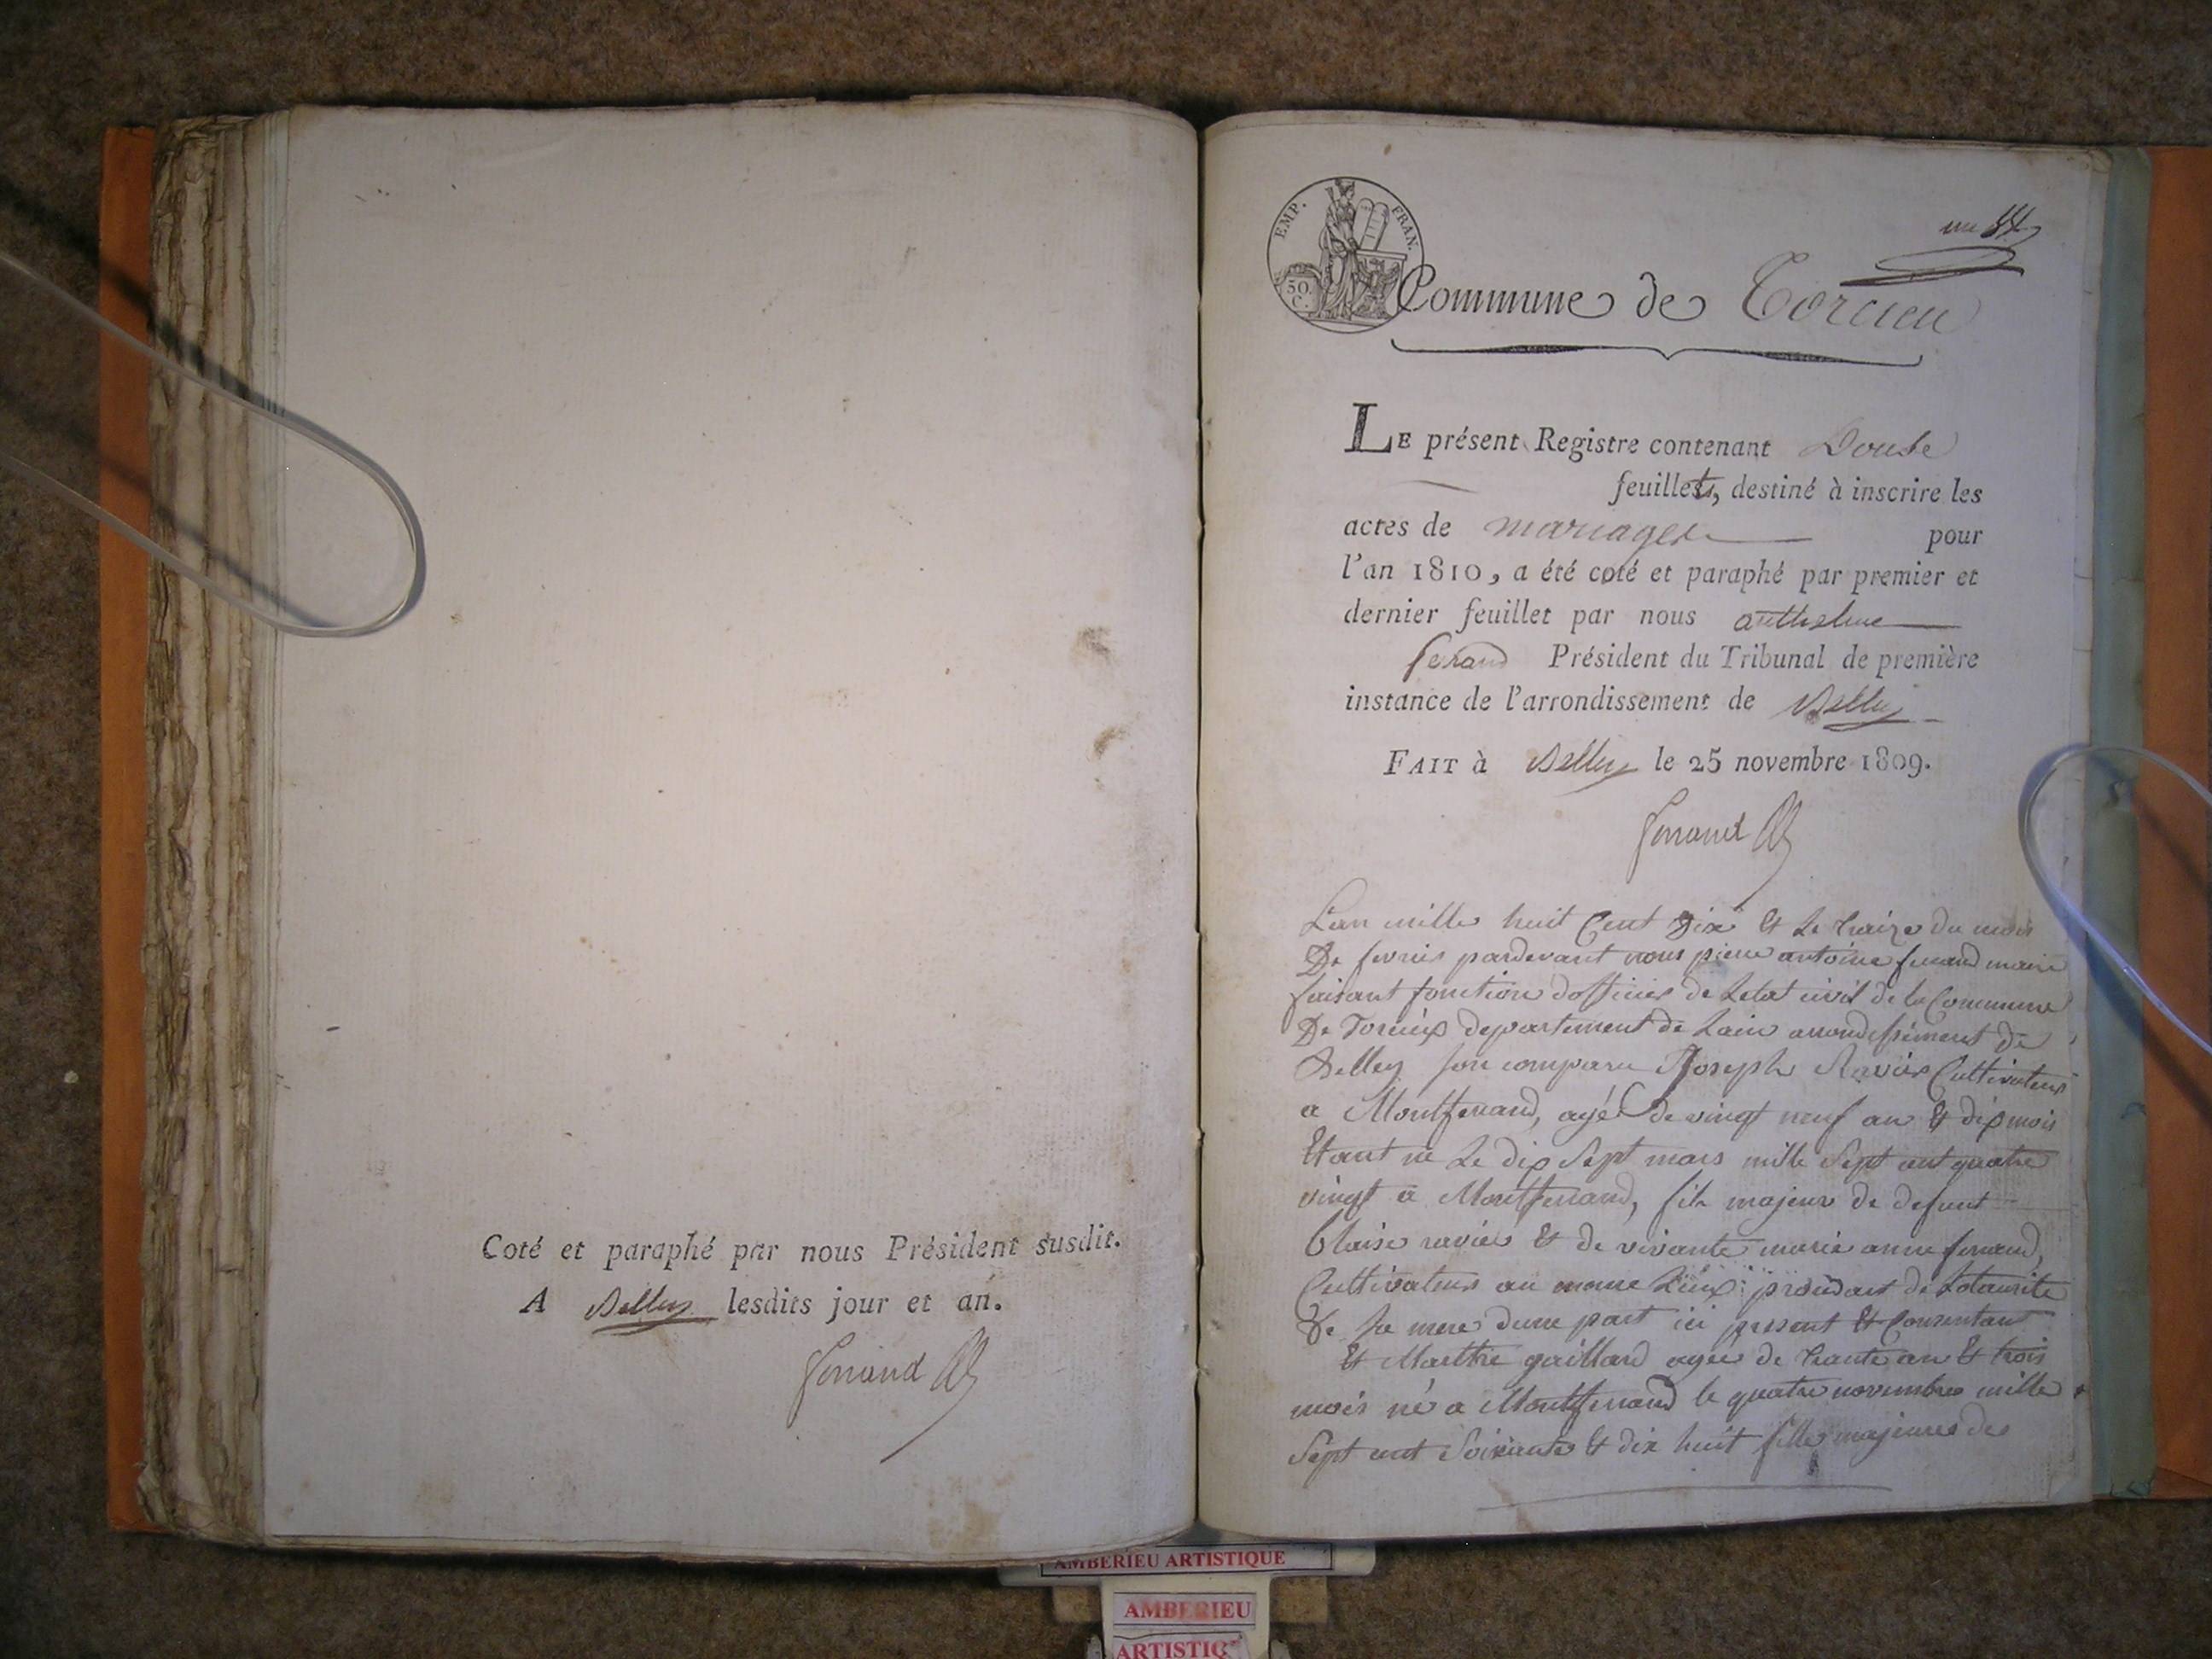 Coté et paraphé par nous Président susdit.
A Belley lesdits jour et an.
ferrand
EMP. FRAN.
50.
C.
un
Commune de Torcieu
LE présent Registre contenant Douse
feuillets, destiné à inscrire les
actes de mariages pour
l'an 1810, a été coté et paraphé par premier et
dernier feuillet par nous anthelme
ferand Président du Tribunal de première
instance de l'arrondissement de Belley
FAIT à Belley le 25 novembre 1809.
ferrand
L'an mille huit Cent dix & le traize du mois
De fevrier pardevant nous pierre antoine ferrand maire
faisant fonction dofficier de Letat civil de la Commune
De Torcieux departement de Lain arrondissement de
Belley son comparu Joseph Ravier Cultivateur
a Montferrand, agé de vingt neuf an & dix mois
Etant né le dix Sept mars mille Sept cent quatre
vingt a Montferrand, fils majeur de defunt
Claise ravier & de vivante marie anne ferrand,
Cultivateur au meme Lieux
De sa mere dune part ici present & Consentant
& Marthe gaillard agée de trante an & trois
mois né a Montferrand le quatre novembre mille
Sept cent Soixante & dix huit fille majeures des
AMBERIEU ARTISTIQUE
AMBERIEU
ARTISTIQ